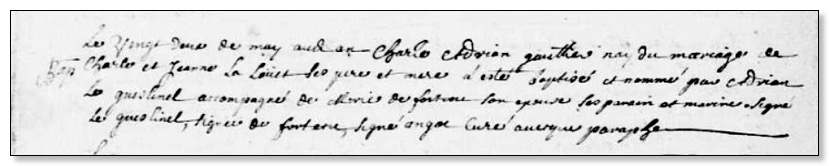 Le Vingt deux de may aud an Charle Adrian gautier nay du mariage de
Bap Charle et Jeanne La Loüet ses pere et mere a esté baptisé et nommé par Adrian
Le queslinel accompagné de Marie de fortene son epouse ses parain et marine. signé
le queslinel, signée de fortene, signé angot Curé avecque paraphe